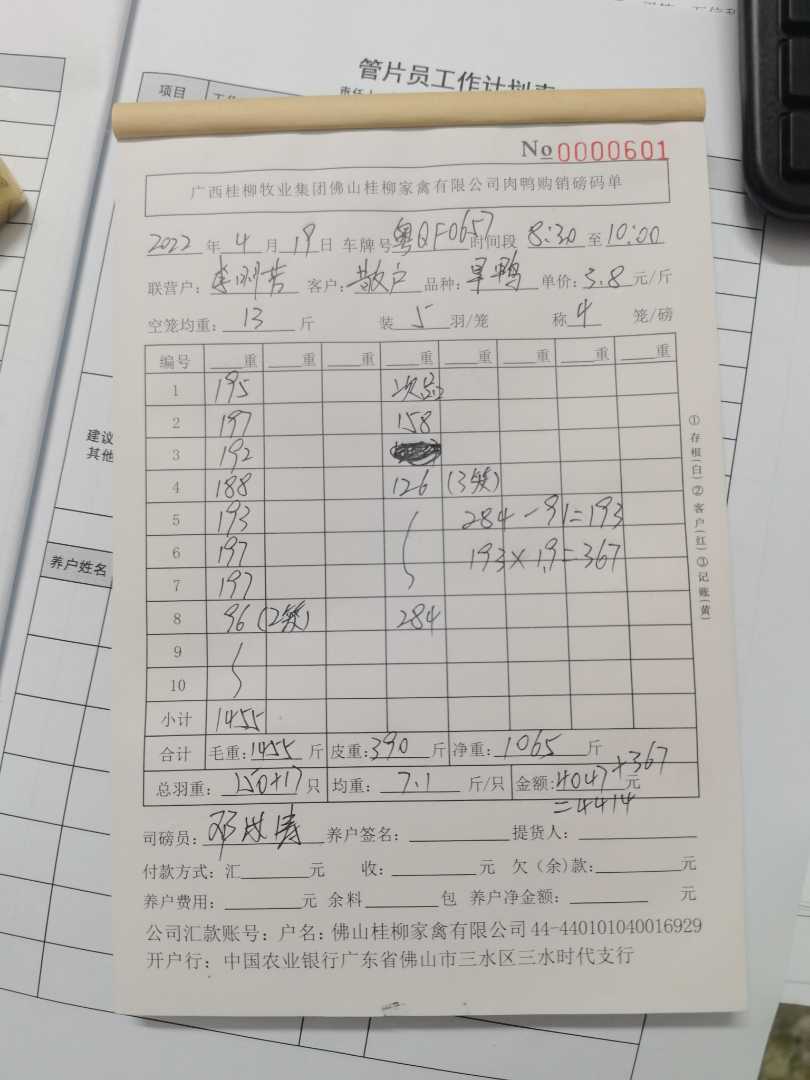 管片员工作计划表
项目
No 0000601
广西桂柳牧业集团佛山桂柳家禽有限公司肉鸭购销磅码单
2022 年 4 月 19 日 车牌号 粤QF0657 时间段 8:30 至 10:00
联营户: 客户: 散户 品种: 旱鸭 单价: 3.8 元/斤
空笼均重: 13 斤 装 5 羽/笼 称 4 笼/磅
编号 重 重 重 重 重 重 重 重
1 195 次品
2 197 158
3 192
4 188 126 (3笼)
5 193 284-91=193
6 197 193×1.9=367
7 197
8 96 (2笼) 284
9
10
小计 1455
合计 毛重: 1455 斤 皮重: 390 斤 净重: 1065 斤
总羽重: 150+17 只 均重: 7.1 斤/只 金额: 4047+367 元
=4414
司磅员: 养户签名: 提货人:
付款方式: 汇 元 收: 元 欠(余)款: 元
养户费用: 元 余料 包 养户净金额: 元
公司汇款账号: 户名: 佛山桂柳家禽有限公司 44-440101040016929
开户行: 中国农业银行广东省佛山市三水区三水时代支行
①存根(白)②客户(红)③记账(黄)
建议
其他
养户姓名